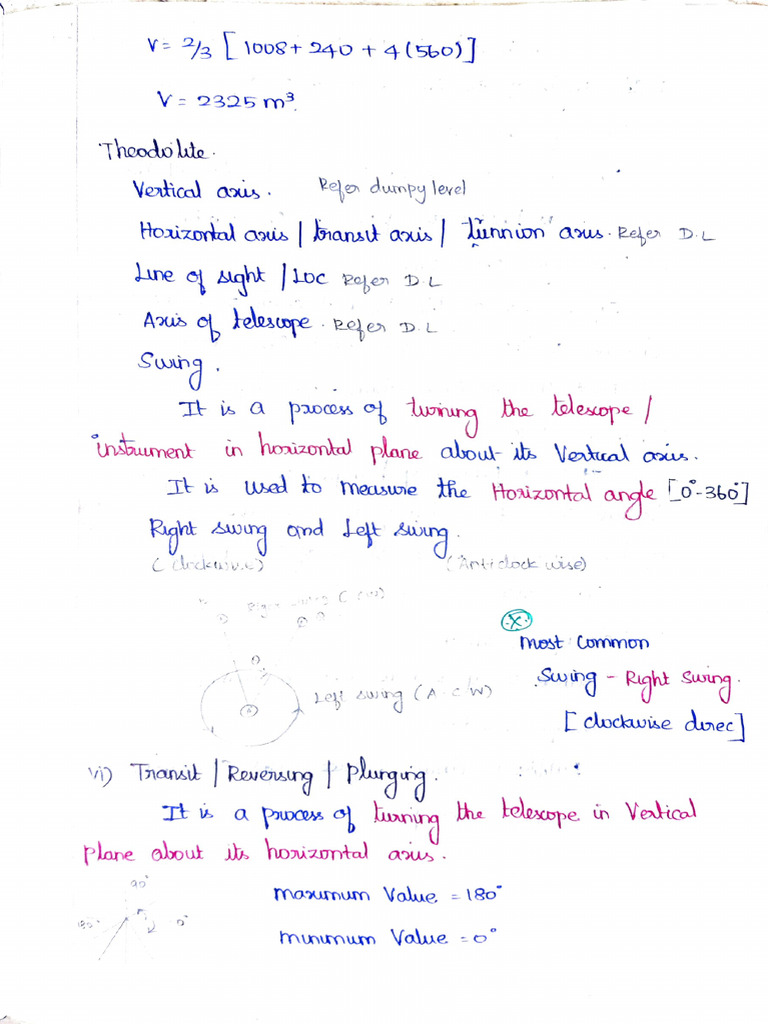 V = 2/3 [ 1008 + 240 + 4 (560) ]
V = 2325 m³.
Theodolite.
Vertical axis. Refer dumpy level
Horizontal axis / transit axis / "tunnion" axis. Refer D.L
Line of sight / LOC Refer D.L
Axis of telescope. Refer D.L
Swing.
It is a process of turning the telescope /
instrument in horizontal plane about its Vertical axis.
It is used to measure the Horizontal angle [0°-360°]
Right swing and Left swing.
(clockwise) (Anticlock wise)
(CW)
Left swing (A.C.W)
(x)
most common
Swing - Right swing.
[clockwise direc]
vi) Transit / Reversing / Plunging.
It is a process of turning the telescope in Vertical
plane about its horizontal axis.
90°
180° 0°
maximum Value = 180°
minimum Value = 0°